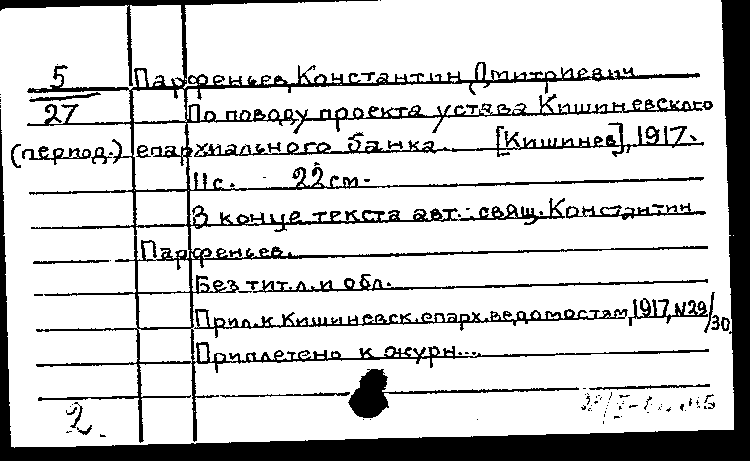 5 Парфеньев, Константин Дмитриевич
27 По поводу проекта устава Кишиневского
(период.) епархиального банка. [Кишинев], 1917.
11с. 22см.
В конце текста авт.: свящ. Константин
Парфеньев.
Без тит.л. и обл.
Прил. к Кишиневск. епарх. ведомостям, 1917, №29/30
Приплетено к журн...
2.